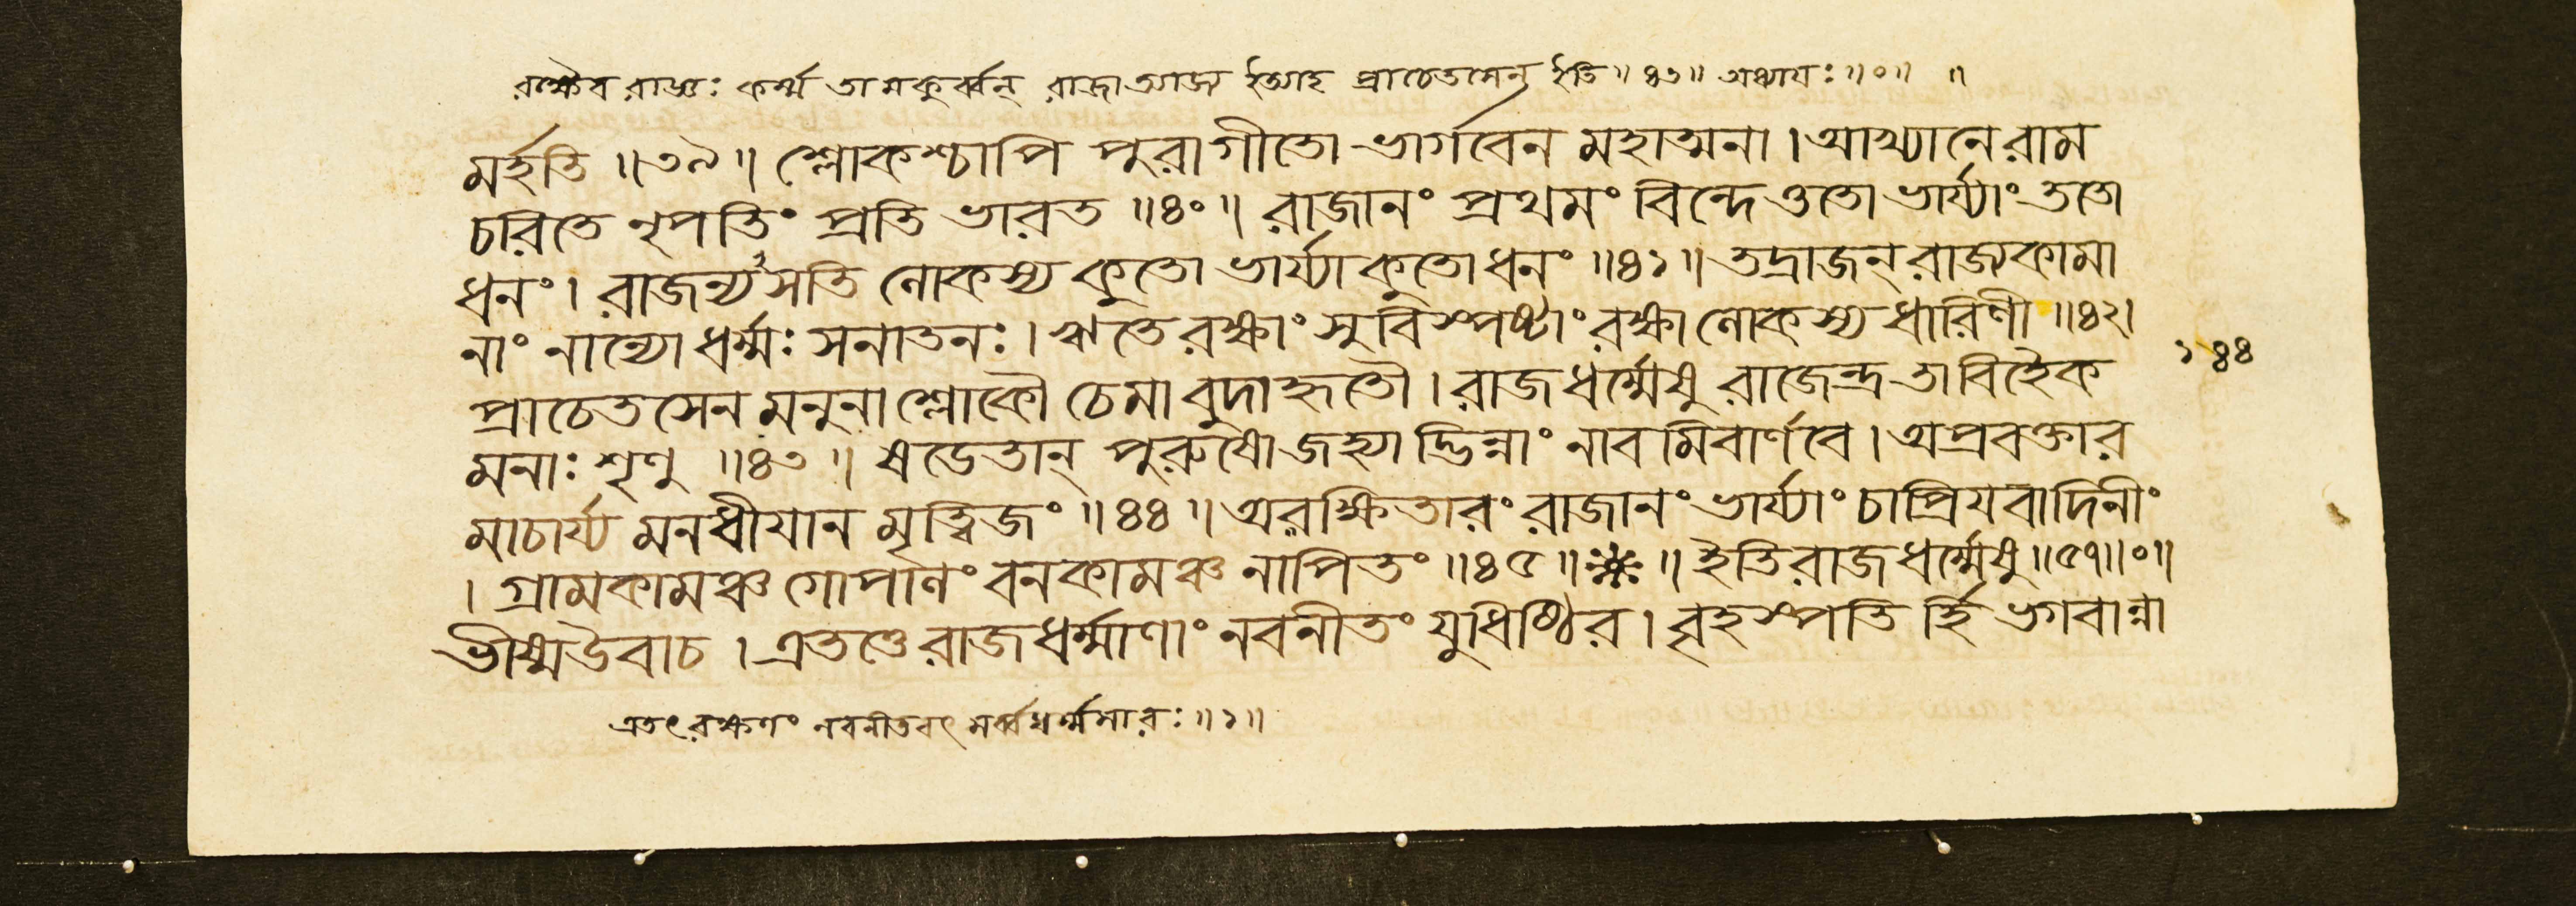 রক্ষৈব রাজ্ঞঃ কর্ম্ম তামকুর্ব্বন্ রাজা ত্যাজ্য ইত্যাহ প্রাচেতসেন ইতি॥ ৪৩॥ অধ্যায়ঃ॥০॥ ॥
মর্হতি॥৩৯॥ শ্লোকশ্চাপি পুরাগীতো ভার্গবেন মহাত্মনা। আখ্যানে রাম
চরিতে নৃপতিং প্রতি ভারত॥৪০॥ রাজানং প্রথমং বিন্দেত্ততো ভার্য্যাং ততো
ধনং। রাজন্যসতি লোকস্য কুতো ভার্য্যা কুতো ধনং॥৪১॥ তদ্রাজন্ রাজ্যকামা
নাং নান্যো ধর্ম্মঃ সনাতনঃ। ঋতে রক্ষাং সুবিস্পষ্টাং রক্ষা লোকস্য ধারিণী॥৪২।
১৪৪
প্রাচেতসেন মনুনা শ্লোকৌ চেমাবুদাহৃতৌ। রাজধর্ম্মেষু রাজেন্দ্র তাবিহৈক
মনাঃ শৃণু॥৪৩॥ ষডেতান্ পুরুষো জহ্যাদ্ভিন্নাং নাবমিবার্ণবে। অপ্রবক্তার
মাচার্য্য মনধীয়ান মৃত্বিজং॥৪৪॥ অরক্ষিতারং রাজানং ভার্য্যাং চাপ্রিয়বাদিনীং
। গ্রামকামঞ্চ গোপালং বনকামঞ্চ নাপিতং॥৪৫॥※॥ ইতি রাজধর্ম্মেষু॥৫৭॥০॥
ভীষ্মউবাচ। এতত্তে রাজধর্ম্মাণাং নবনীতং যুধিষ্ঠির। বৃহস্পতি র্হি ভগবান্না
এতৎ রক্ষণং নবনীতবৎ সর্ব্বধর্ম্মসারঃ॥১॥